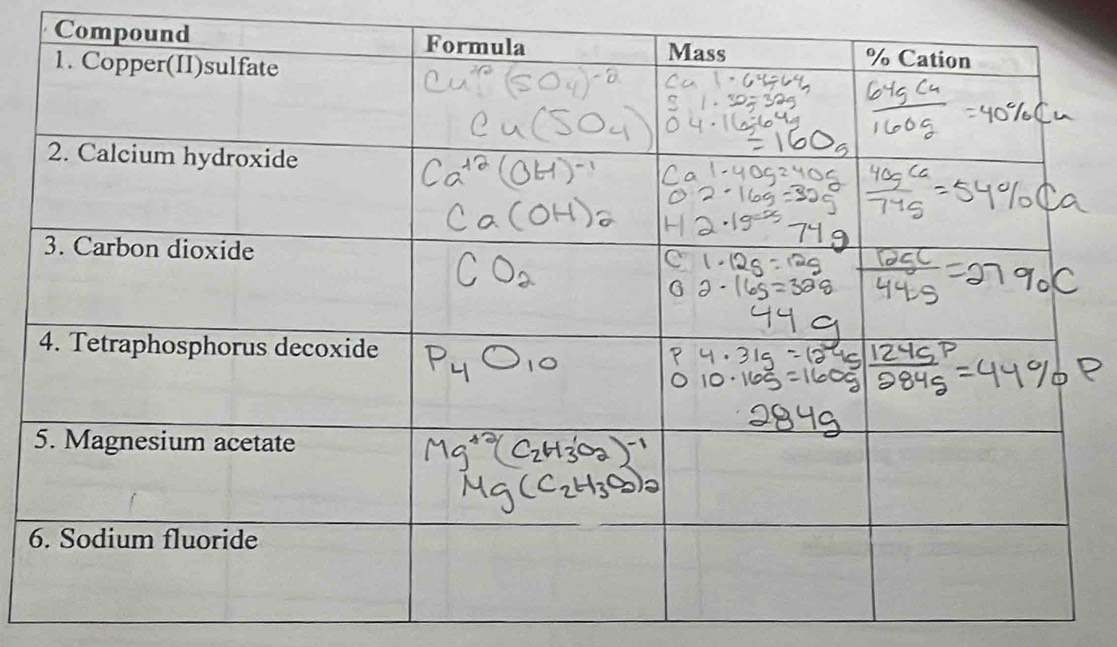 Compound Formula Mass % Cation
1. Copper(II)sulfate
Cu⁺² (SO₄)⁻²
Cu(SO₄)
Cu 1·64=64g
S 1·32=32g
O 4·16g=64g
= 160g
64g Cu
160g
=40% Cu
2. Calcium hydroxide
Ca⁺² (OH)⁻¹
Ca(OH)₂
Ca 1·40g=40g
O 2·16g=32g
H 2·1g=2g
74g
40g Ca
74g
=54% Ca
3. Carbon dioxide
CO₂
C 1·12g=12g
O 2·16g=32g
44g
12g C
44g
=27% C
4. Tetraphosphorus decoxide
P₄O₁₀
P 4·31g=124g
O 10·16g=160g
284g
124g P
284g
=44% P
5. Magnesium acetate
Mg⁺² (C₂H₃O₂)⁻¹
Mg(C₂H₃O₂)₂
6. Sodium fluoride